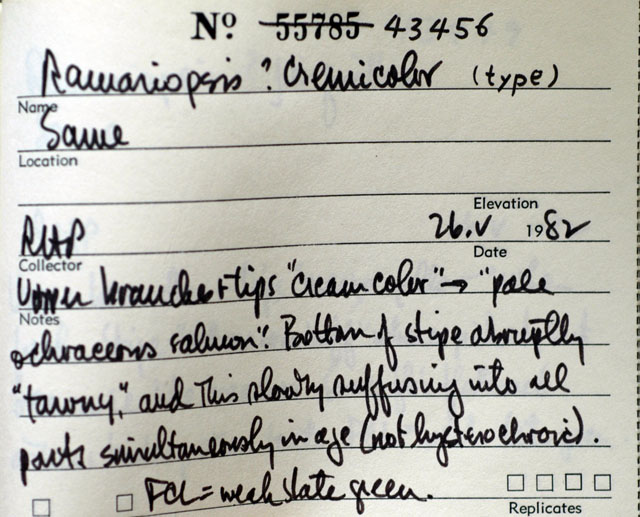 Nº 55785 43456
Ramariopsis ? Cremicolor (type)
Name
Same
Location
Elevation
RHP 26.V 1982
Collector Date
Upper branches + tips "cream color" → "pale
Notes
ochraceous salmon". Bottom of stipe abruptly
"tawny," and this slowly suffusing into all
parts simultaneously in age (not hysterochroic).
FCL = weak slate green.
Replicates